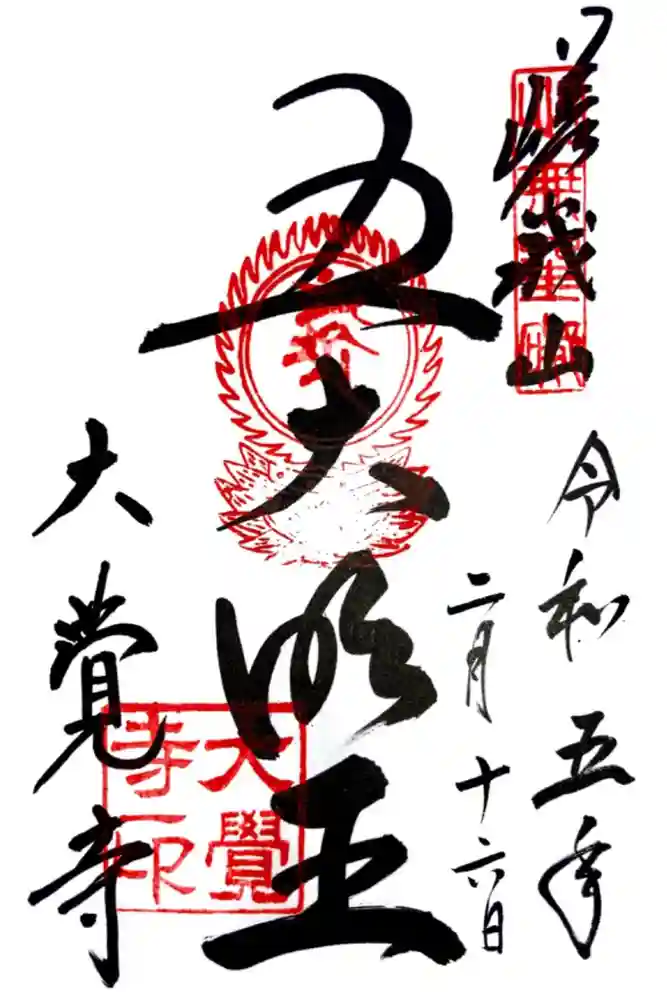 嵯峨山
令和五年
二月十六日
五大明王
大覚寺
大覺
寺印